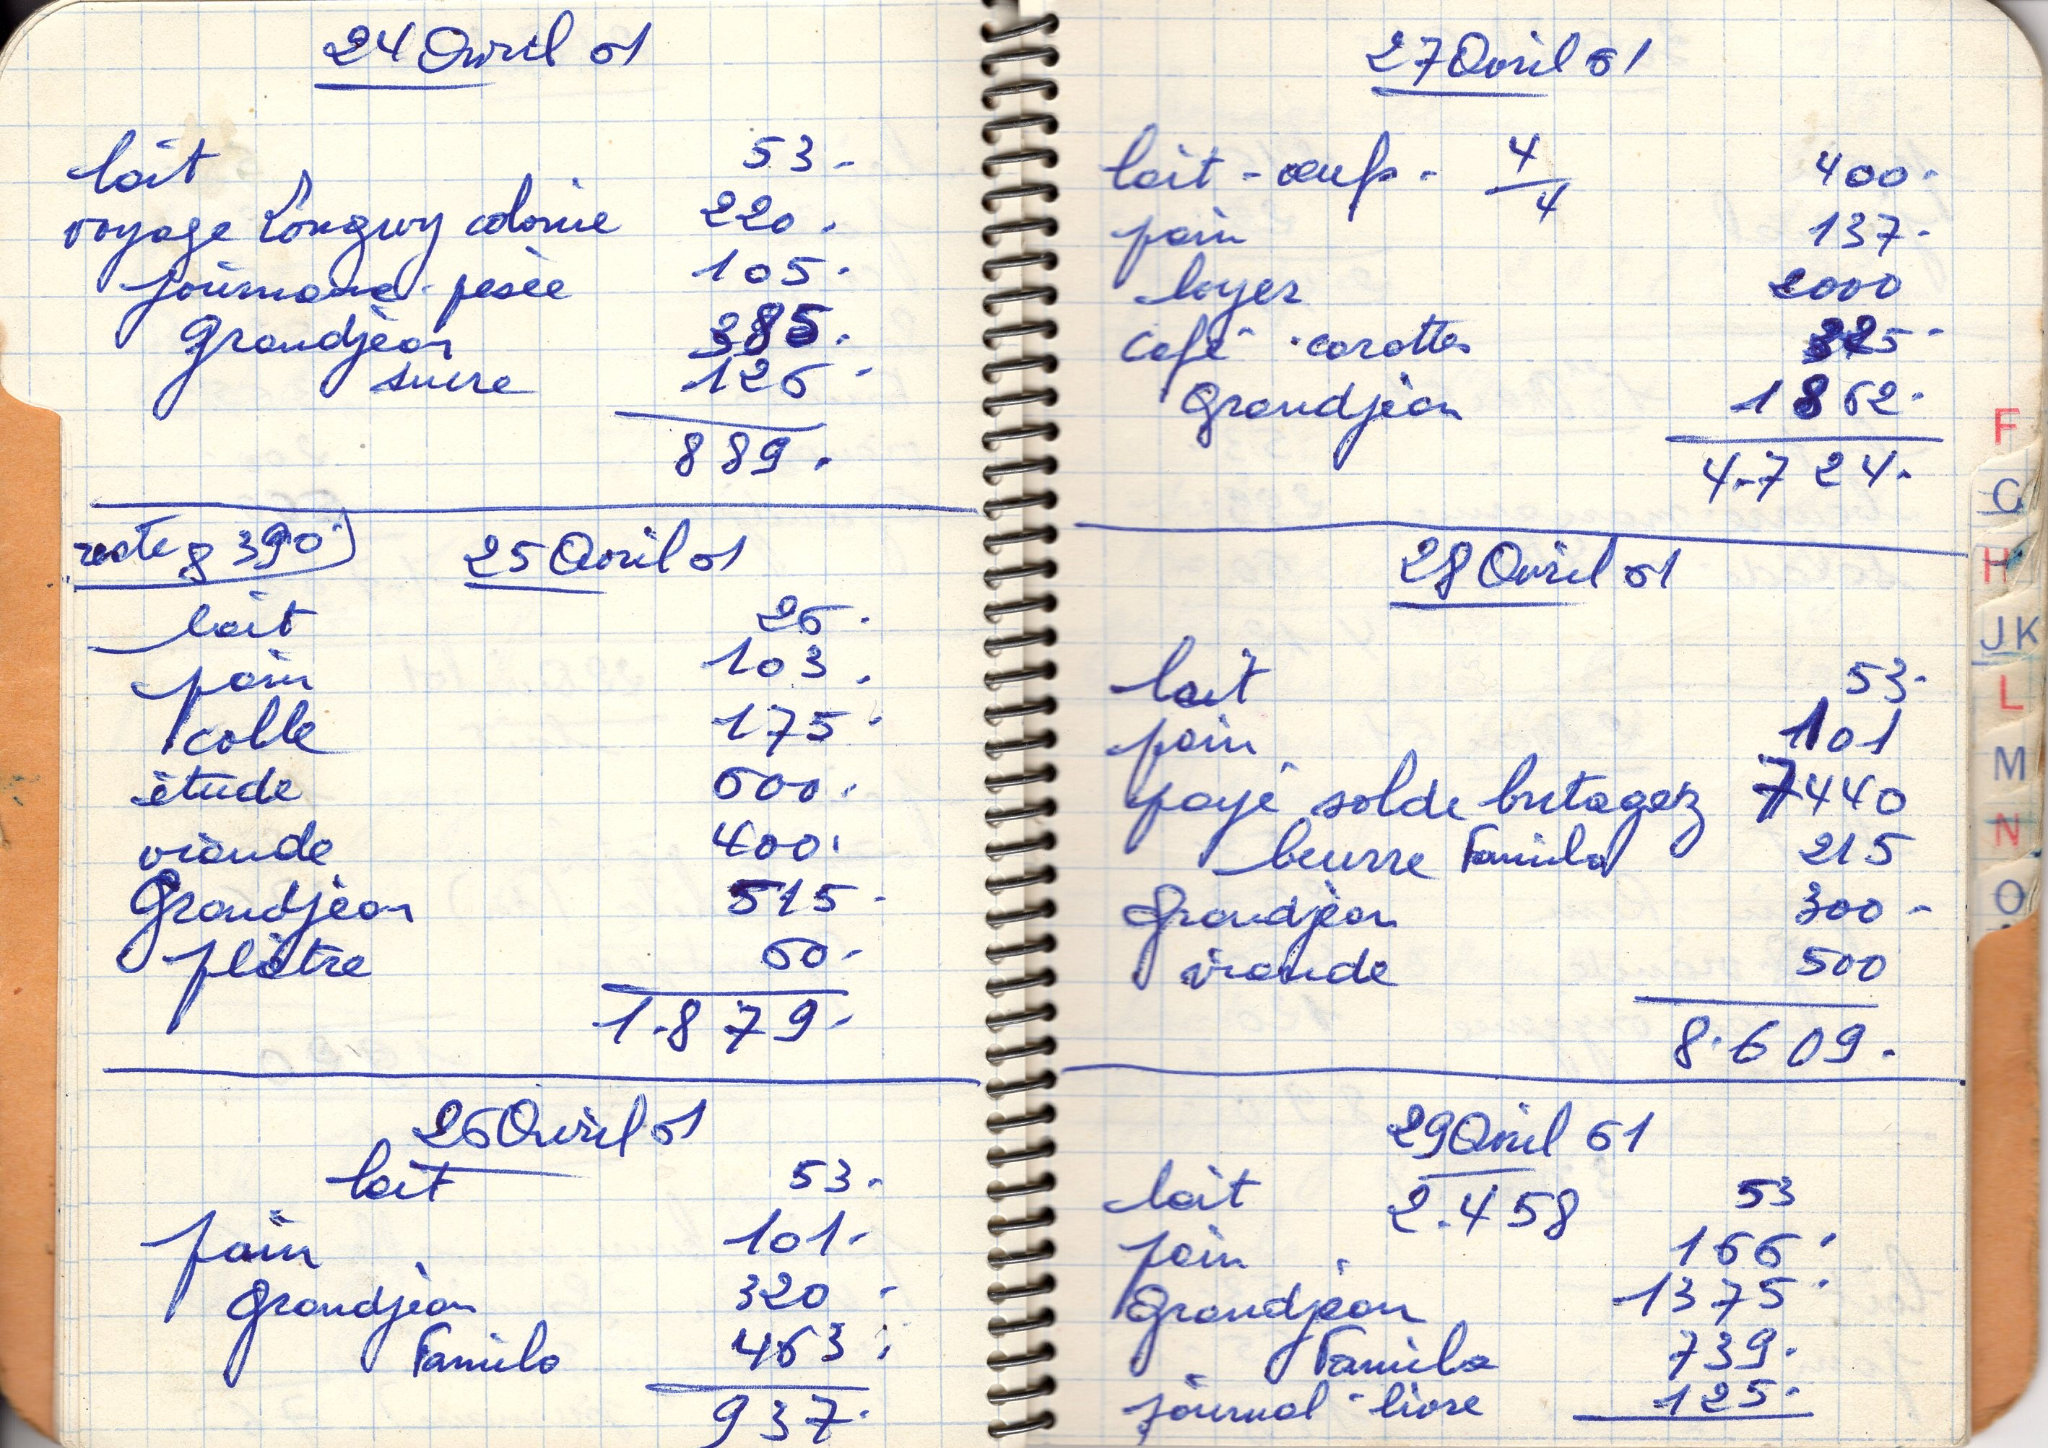 24 Avril 61
lait 53.-
voyage Longwy colonie 220.
journaux - pesée 105.
Grandjean 385.
sucre 126.-
889.
reste 8 390.
25 Avril 61
lait 26.
pain 103.
colle 175.
étude 600.
viande 400.
Grandjean 515.-
plâtre 60.-
1.879.-
26 Avril 61
lait 53.-
pain 101.-
Grandjean 320.-
Famila 463.
937.
27 Avril 61
lait - oeufs - 4/4 400.
pain 137.-
loyer 2000
Café - carottes 325.-
Grandjean 1862.
4.724.
28 Avril 61
lait 53.-
pain 101
payé solde butagaz 7440
beurre Famila 215
Grandjean 300.-
viande 500
8.609.
29 Avril 61
lait 2.458 53
pain 166.
Grandjean 1375.
Famila 739.
journal - livre 125.
F
G
H
JK
L
M
N
O